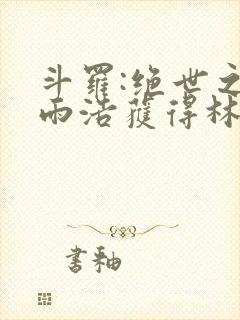 斗羅:绝世之
雨浩獲得林
書釉